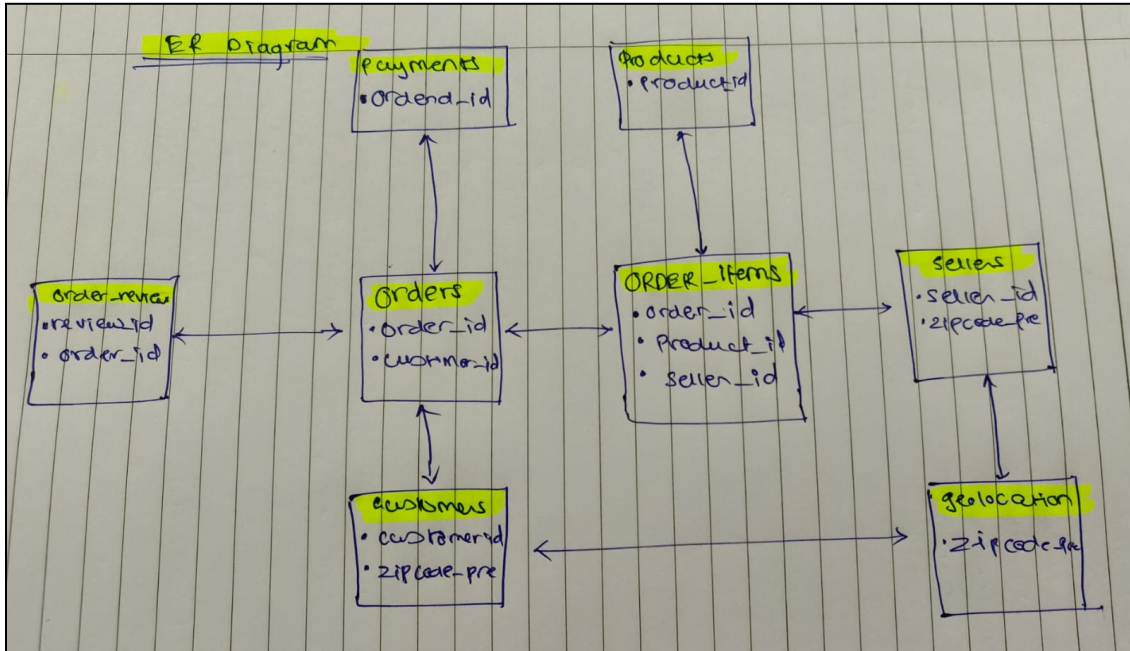 ER Diagram
Payments
• Ordend_id
Products
• Productid
order_review
• review_id
• order_id
Orders
• Order_id
• customer_id
ORDER_Items
• order_id
• Product_id
• Seller_id
Sellers
• Seller_id
• Zipcode_pre
customers
• customerid
• zipcode_pre
geolocation
• Zipcode_pre